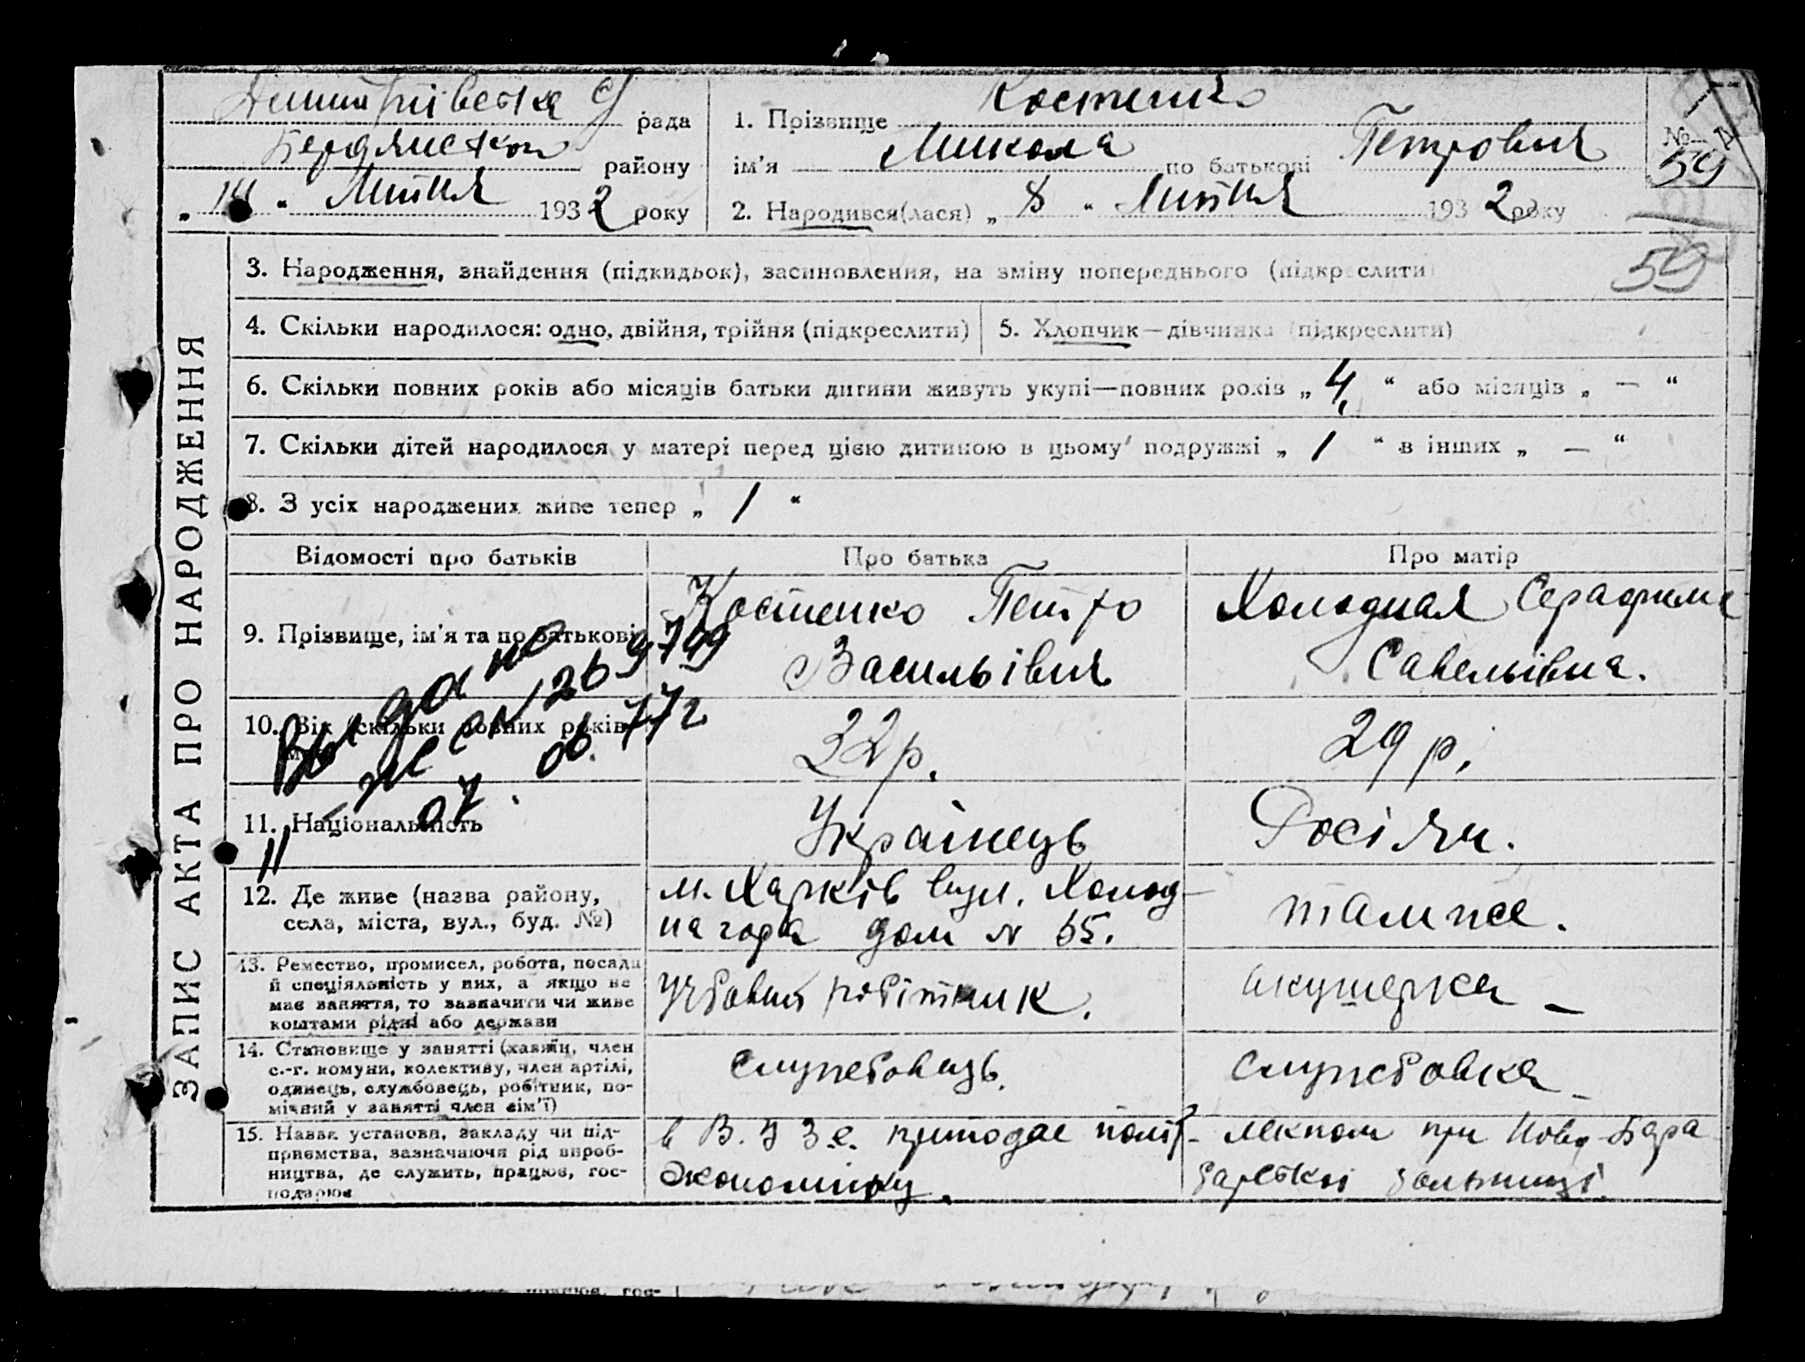 Димитрівська с/ рада
Бердянського району
„ 14 “ Липня 1932 року
1. Прізвище Костенко
ім'я Микола по батькові Петрович
2. Народився(лася) „ 8 “ Липня 1932 року
№ 59
59
ЗАПИС АКТА ПРО НАРОДЖЕННЯ
3. Народження, знайдення (підкидьок), засиновлення, на зміну попереднього (підкреслити)
4. Скільки народилося: одно, двійня, трійня (підкреслити)
5. Хлопчик—дівчинка (підкреслити)
6. Скільки повних років або місяців батьки дитини живуть укупі—повних років „ 4 “ або місяців „ — “
7. Скільки дітей народилося у матері перед цією дитиною в цьому подружжі „ 1 “ в інших „ — “
8. З усіх народжених живе тепер „ 1 “
Відомості про батьків
Про батька
Про матір
9. Прізвище, ім'я та по батькові
Костенко Петро
Васильівич
Холодная Серафима
Савельівна.
10. Вік (скільки повних років)
32 р.
29 р.
11. Національність
Українець
Росіян.
Выдано
26 9799
07. 06. 77 г
12. Де живе (назва району,
села, міста, вул., буд. №)
м. Харків вул. Холод-
на гора дом № 65.
там же.
13. Ремество, промисел, робота, посада
й спеціяльність у них, а якщо не
має заняття, то зазначити чи живе
коштами рідні або держави
Учбовий робітник.
акушерка —
14. Становище у занятті (хазяїн, член
с.-г. комуни, колективу, член артілі,
одинець, службовець, робітник, по-
мічний у занятті член сім'ї)
служебовець.
служебовка
15. Назва установи, закладу чи під-
приємства, зазначаючи рід вироб-
ництва, де служить, працює, гос-
подарює
в В. У З е. приподає політ-
економіку.
лекпом при Ново-
больниці.